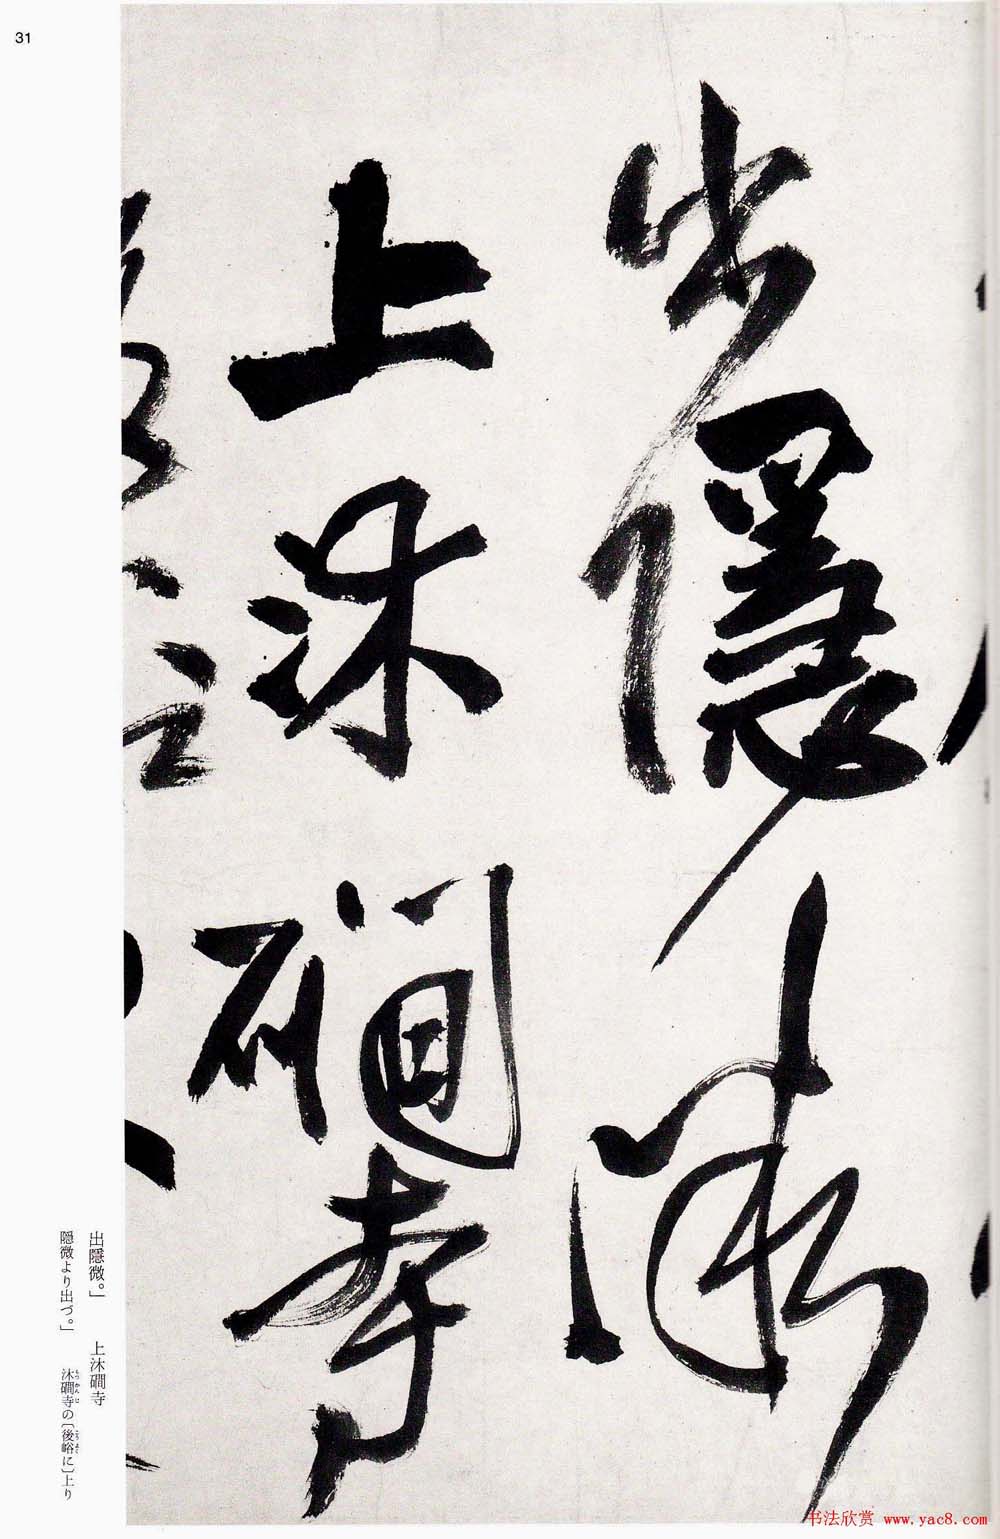 31
出隱微
上沐磵寺
出隱微。」　上沐磵寺
隠微より出づ。」　沐磵寺の〔後峪に〕上り
书法欣赏 www.yac8.com